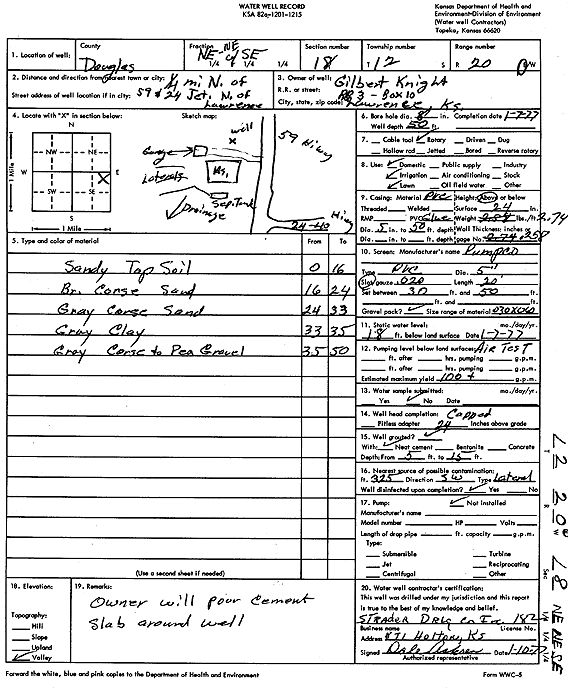 WATER WELL RECORD
KSA 82a-1201-1215
Kansas Department of Health and
Environment-Division of Environment
(Water well Contractors)
Topeka, Kansas 66620
1. Location of well:
County
Douglas
Fraction
NE-NE of SE
1/4 1/4 1/4
Section number
18
Township number
T 12 S
Range number
R 20 E/W
2. Distance and direction from nearest town or city: 1/4 mi N. of
Street address of well location if in city: 59 & 24 Jct. N. of
Lawrence
3. Owner of well: Gilbert Knight
R.R. or street: RR 3 - Box 10
City, state, zip code: Lawrence, Ks.
4. Locate with "X" in section below:
N
NW NE
W E
X
SW SE
S
1 Mile
1 Mile
Sketch map:
well
X
59 Hiway
Garage
Hs.
Laterals
Septic tank
Drainage
24-40 Hiway
5. Type and color of material
From To
Sandy Top Soil 0 16
Br. Corse Sand 16 24
Gray Corse Sand 24 33
Gray Clay 33 35
Gray Corse to Pea Gravel 35 50
(Use a second sheet if needed)
6. Bore hole dia. 8 in. Completion date 1-7-77
Well depth 50 ft.
7. Cable tool ✓ Rotary Driven Dug
Hollow rod Jetted Bored Reverse rotary
8. Use: ✓ Domestic Public supply Industry
✓ Irrigation Air conditioning Stock
✓ Lawn Oil field water Other
9. Casing: Material PVC Height: Above or below
Threaded Welded Surface 24 in.
RMP PVC Glue Weight 2.74 lbs./ft.
Dia. 5 in. to 50 ft. depth Wall Thickness: inches or
Dia. in. to ft. depth gage No. .258
10. Screen: Manufacturer's name
Type PVC Dia. 5"
Slot/gauze .020 Length 20'
Set between 30 ft. and 50 ft.
ft. and ft.
Gravel pack? ✓ Size range of material
11. Static water level: mo./day/yr.
18 ft. below land surface Date 1-7-77
12. Pumping level below land surface: Air Test
ft. after hrs. pumping g.p.m.
ft. after hrs. pumping g.p.m.
Estimated maximum yield 100+ g.p.m.
13. Water sample submitted: mo./day/yr.
Yes ✓ No Date
14. Well head completion: Capped
Pitless adapter 24 Inches above grade
15. Well grouted? ✓
With: ✓ Neat cement Bentonite Concrete
Depth: From 5 ft. to 15 ft.
16. Nearest source of possible contamination:
ft. 325 Direction SW Type Lateral
Well disinfected upon completion? ✓ Yes No
17. Pump: ✓ Not installed
Manufacturer's name
Model number HP Volts
Length of drop pipe ft. capacity g.p.m.
Type:
Submersible Turbine
Jet Reciprocating
Centrifugal Other
18. Elevation:
Topography:
Hill
Slope
Upland
✓ Valley
19. Remarks:
Owner will poor cement
slab around well
20. Water well contractor's certification:
This well was drilled under my jurisdiction and this report
is true to the best of my knowledge and belief.
Strader Drlg Co Inc 182
Business name License No.
Address #71 Holton, Ks
Signed Date 1-10-77
Authorized representative
Forward the white, blue and pink copies to the Department of Health and Environment
Form WWC-5
T 12 R 20 E W Sec 18 NE NE SE
1/4 1/4 1/4